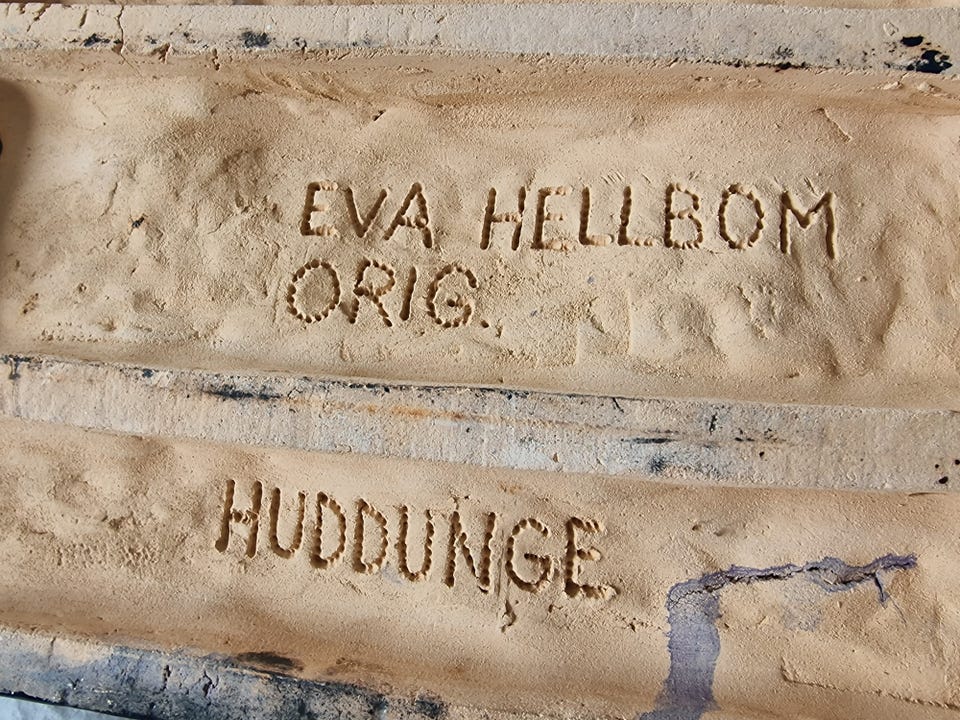 EVA HELLBOM
ORIG.
HUDDUNGE